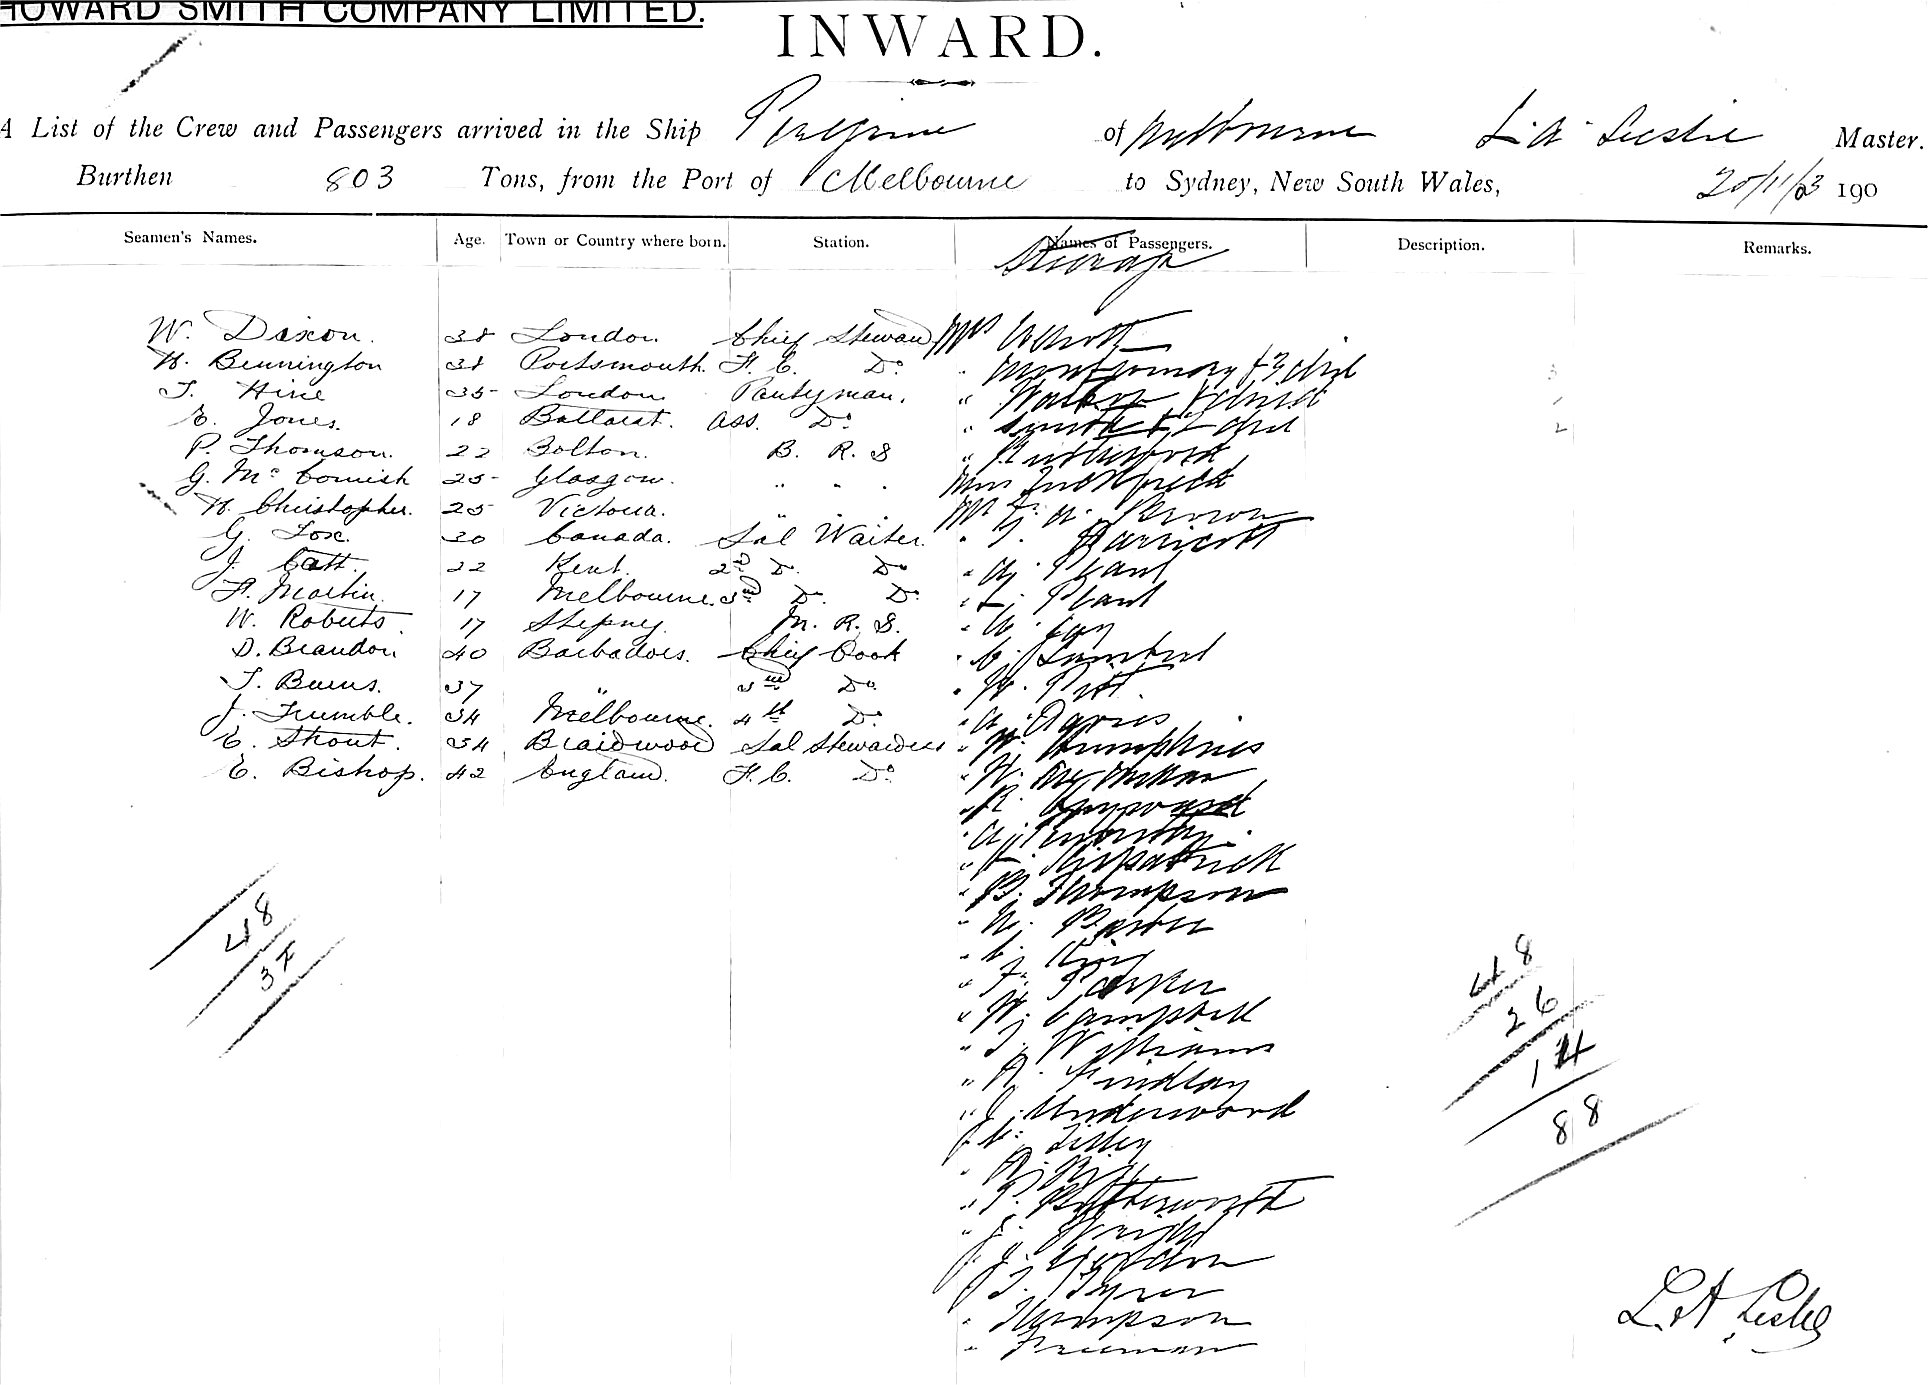 HOWARD SMITH COMPANY LIMITED.
INWARD.
A List of the Crew and Passengers arrived in the Ship Peregrine of Melbourne L. A. Leslie Master.
Burthen 803 Tons, from the Port of Melbourne to Sydney, New South Wales, 20/11/03 190
Seamen's Names. Age. Town or Country where born. Station. Names of Passengers. Description. Remarks.
Steerage
W. Dixon. 38 London. Chief Steward Mrs
H. Bennington 38 Portsmouth. F. C. Do. " Montgomery & 3 chd 3
T. Hine 35 London. Pantryman. " 1
E. Jones. 18 Ballarat. Ass. Do. " & 2 chd 2
P. Thomson. 22 Bolton. B. R. S " Rutherford
G. McCornish 25 Glasgow. " " " Miss
H. Christopher. 25 Victoria. " . . Mr Brown
G. Fox. 30 Canada. Sal Waiter. "
J. Catt. 22 Kent. 2nd D. Do " A. Plant
F. Martin. 17 Melbourne. 3rd D. D. " L. Plant
W. Roberts. 17 Stepney. M. R. S. "
D. Brandon 40 Barbadoes. Chief Cook "
T. Burns. 37 " 3rd Do. " Pitt.
J. Trumble. 34 Melbourne. 4th D. " A. Davies
E. Shout. 34 Braidwood Sal Stewardess " W. Humphries
E. Bishop. 42 England. F. C. Do. " W.
" R.
" A.
" Kirkpatrick
" B. Thompson
" Barber
" C. King
" F. Parker
" W. Campbell
" T. Williams
" R. Findlay
" J. Underwood
" Tilley
" R.
" P. Butterworth
" J. Wright
" J.
" T. Tyrer
" Thompson
" Freeman
48
37
48
26
14
88
L. A. Leslie